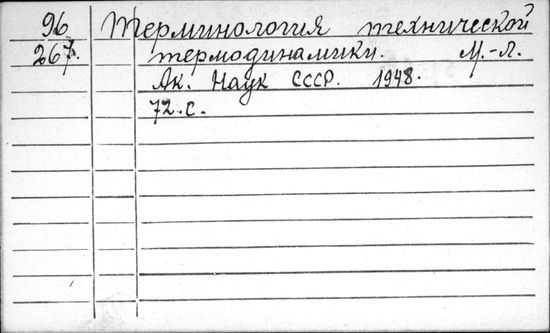 96 Терминология технической
267. термодинамики. М.-Л.
Ак. Наук СССР. 1948.
72.с.